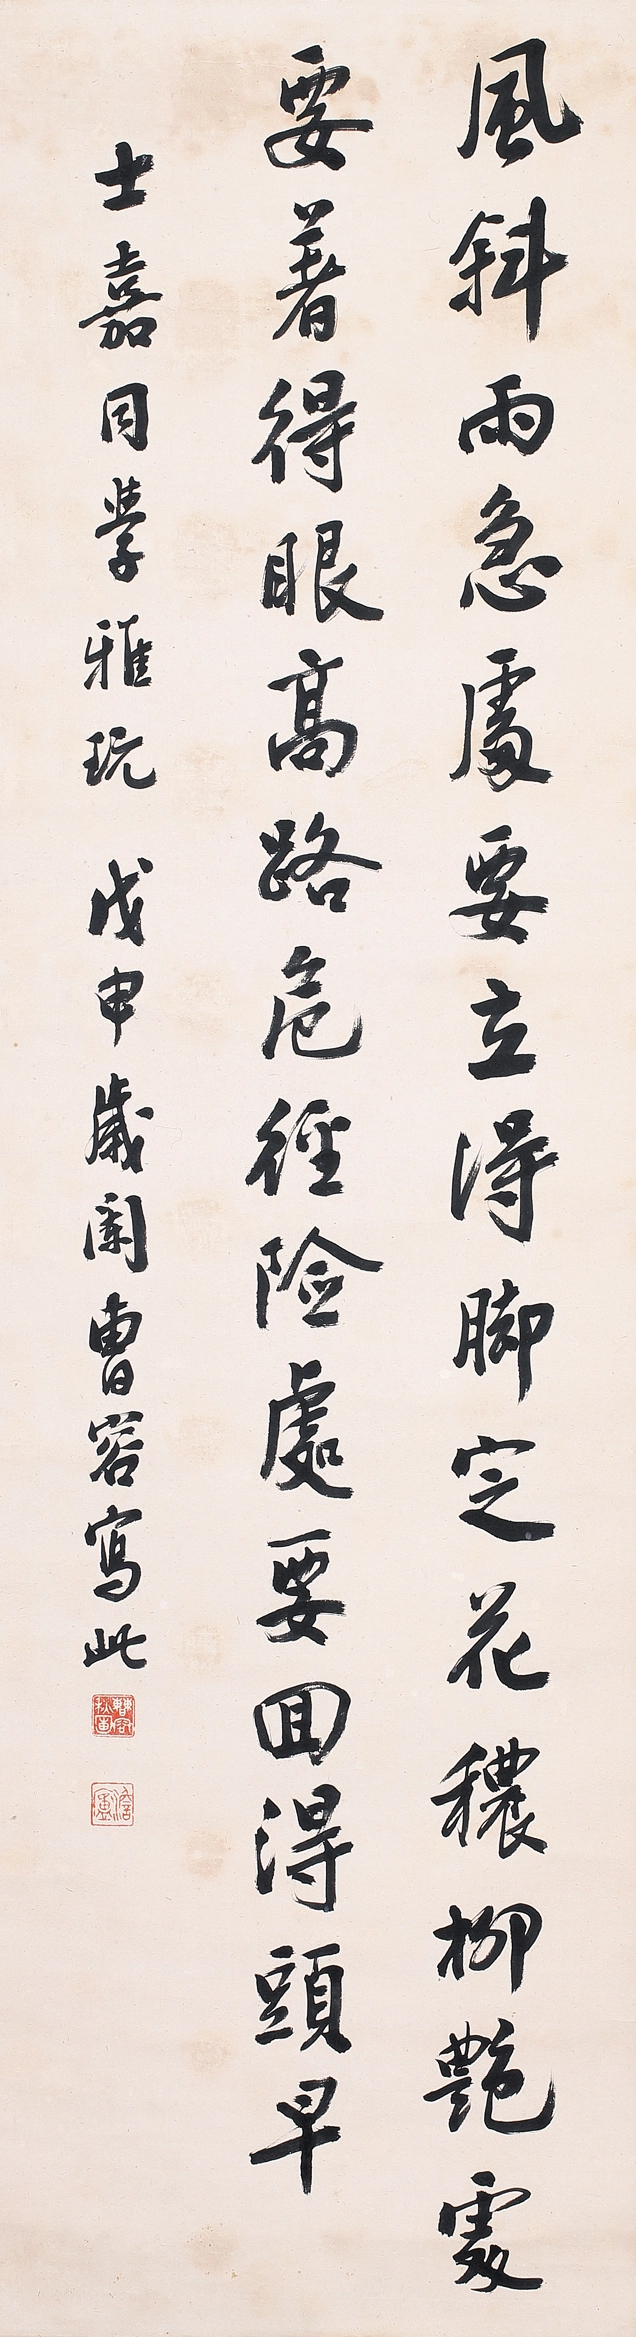 風斜雨急處要立得脚定花穠柳艷處
要著得眼高路危徑險處要回得頭早
士嘉同學雅玩 戊申歲闌曹容寫此
曹容秋圃
澹廬